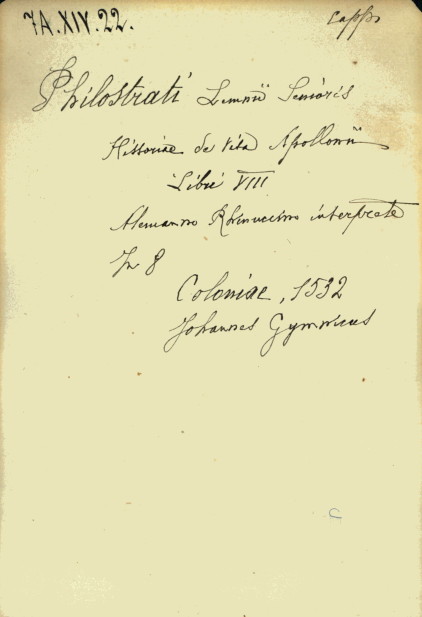 7A.XIV.22.
Cappo
Philostrati Lemnii Senioris
Historiae de vita Apollonii
Libri VIII
Alemanno Rhinuccino interprete
In 8
Coloniae, 1532
Johannes Gymnicus